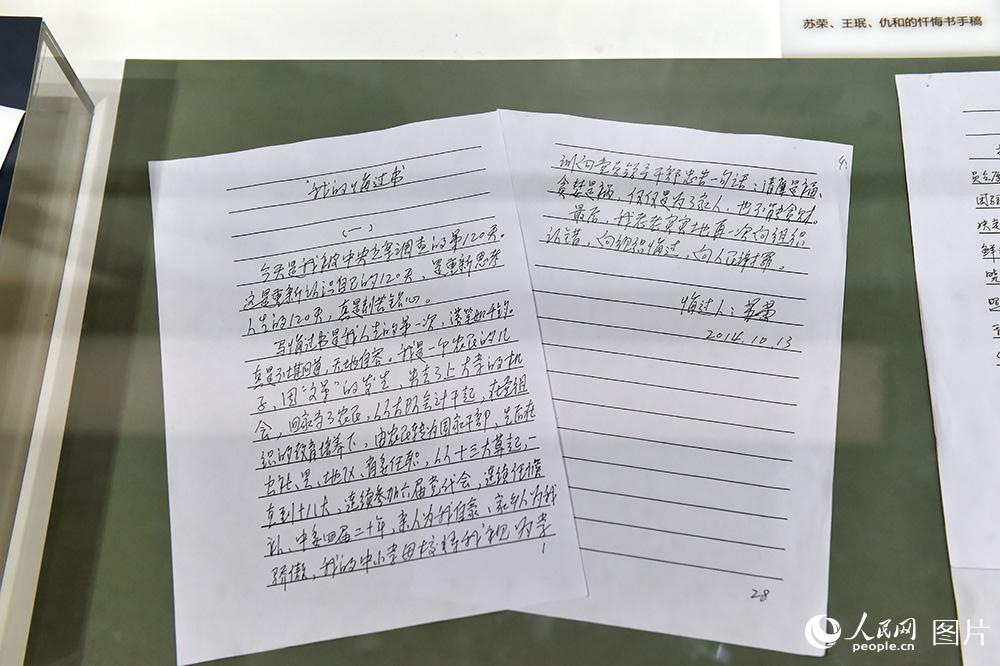 苏荣、王珉、仇和的忏悔书手稿
我的悔过书
（一）
今天是我被中央立案调查的第120天。
这是重新认识自己的120天，是重新思考
人生的120天，真是刻苦铭心。
写悔过书是我人生的第一次，落笔如千钧。
真是不堪回首，无地自容。我是一个农民的儿
子，因“文革”的发生，失去了上大学的机
会，回家当了农民，从大队会计干起，在党组
织的教育培养下，由农民转为国家干部，先后在
公社、县、地区、省委任职，从十三大算起，一
直到十八大，连续参加六届党代会，连续任候
补、中委四届二十年，亲人为我自豪、家乡人为我
骄傲，我的中小学母校将我视为学
1
4.
训向党员领导干部忠告一句话：清廉是福、
贪婪是祸，仅仅是为了家人，也不能贪财。
最后，我老老实实地再一次向组织
认错，向组织悔过，向人民谢罪。
悔过人：苏荣
2014.10.13
28
人民网
people.cn
图片